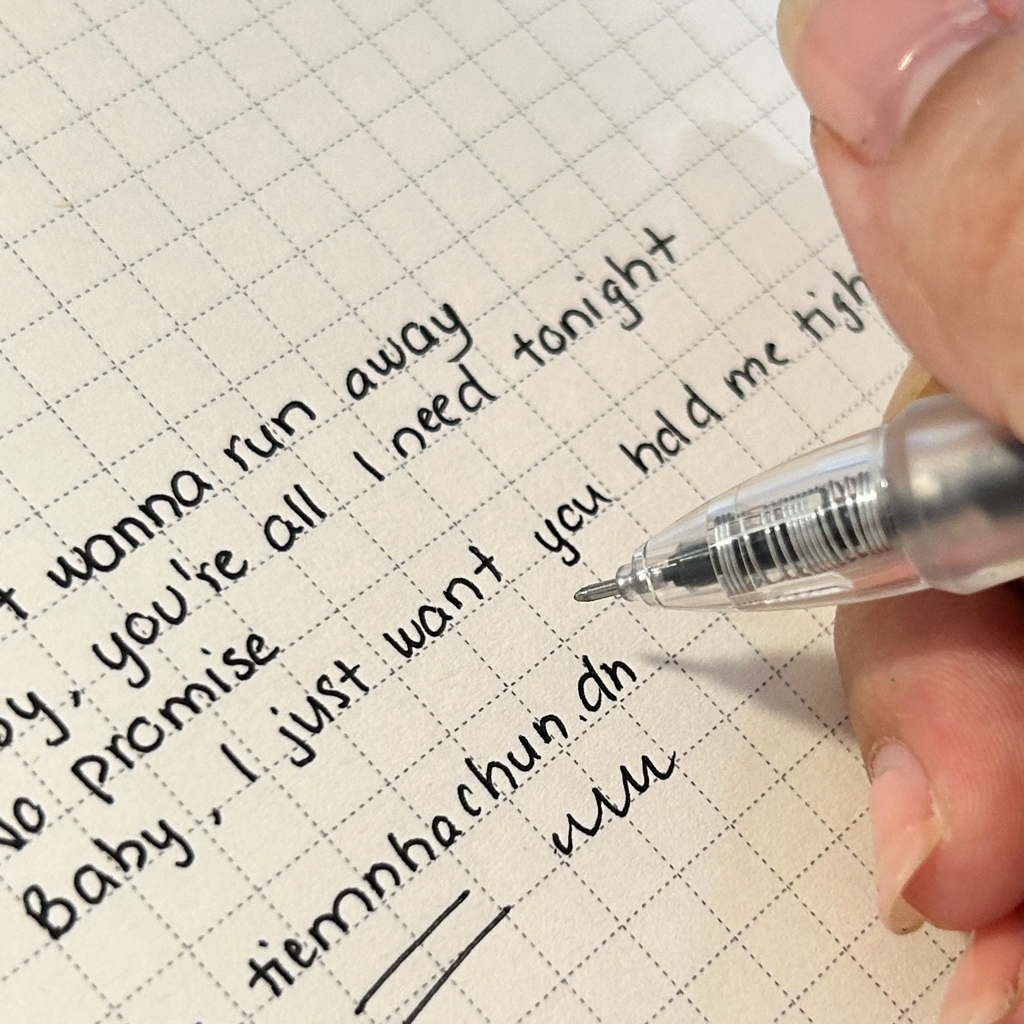 wanna run away
you're all I need tonight
No promise
Baby, I just want you hold me tigh
tiemnhachun.dn